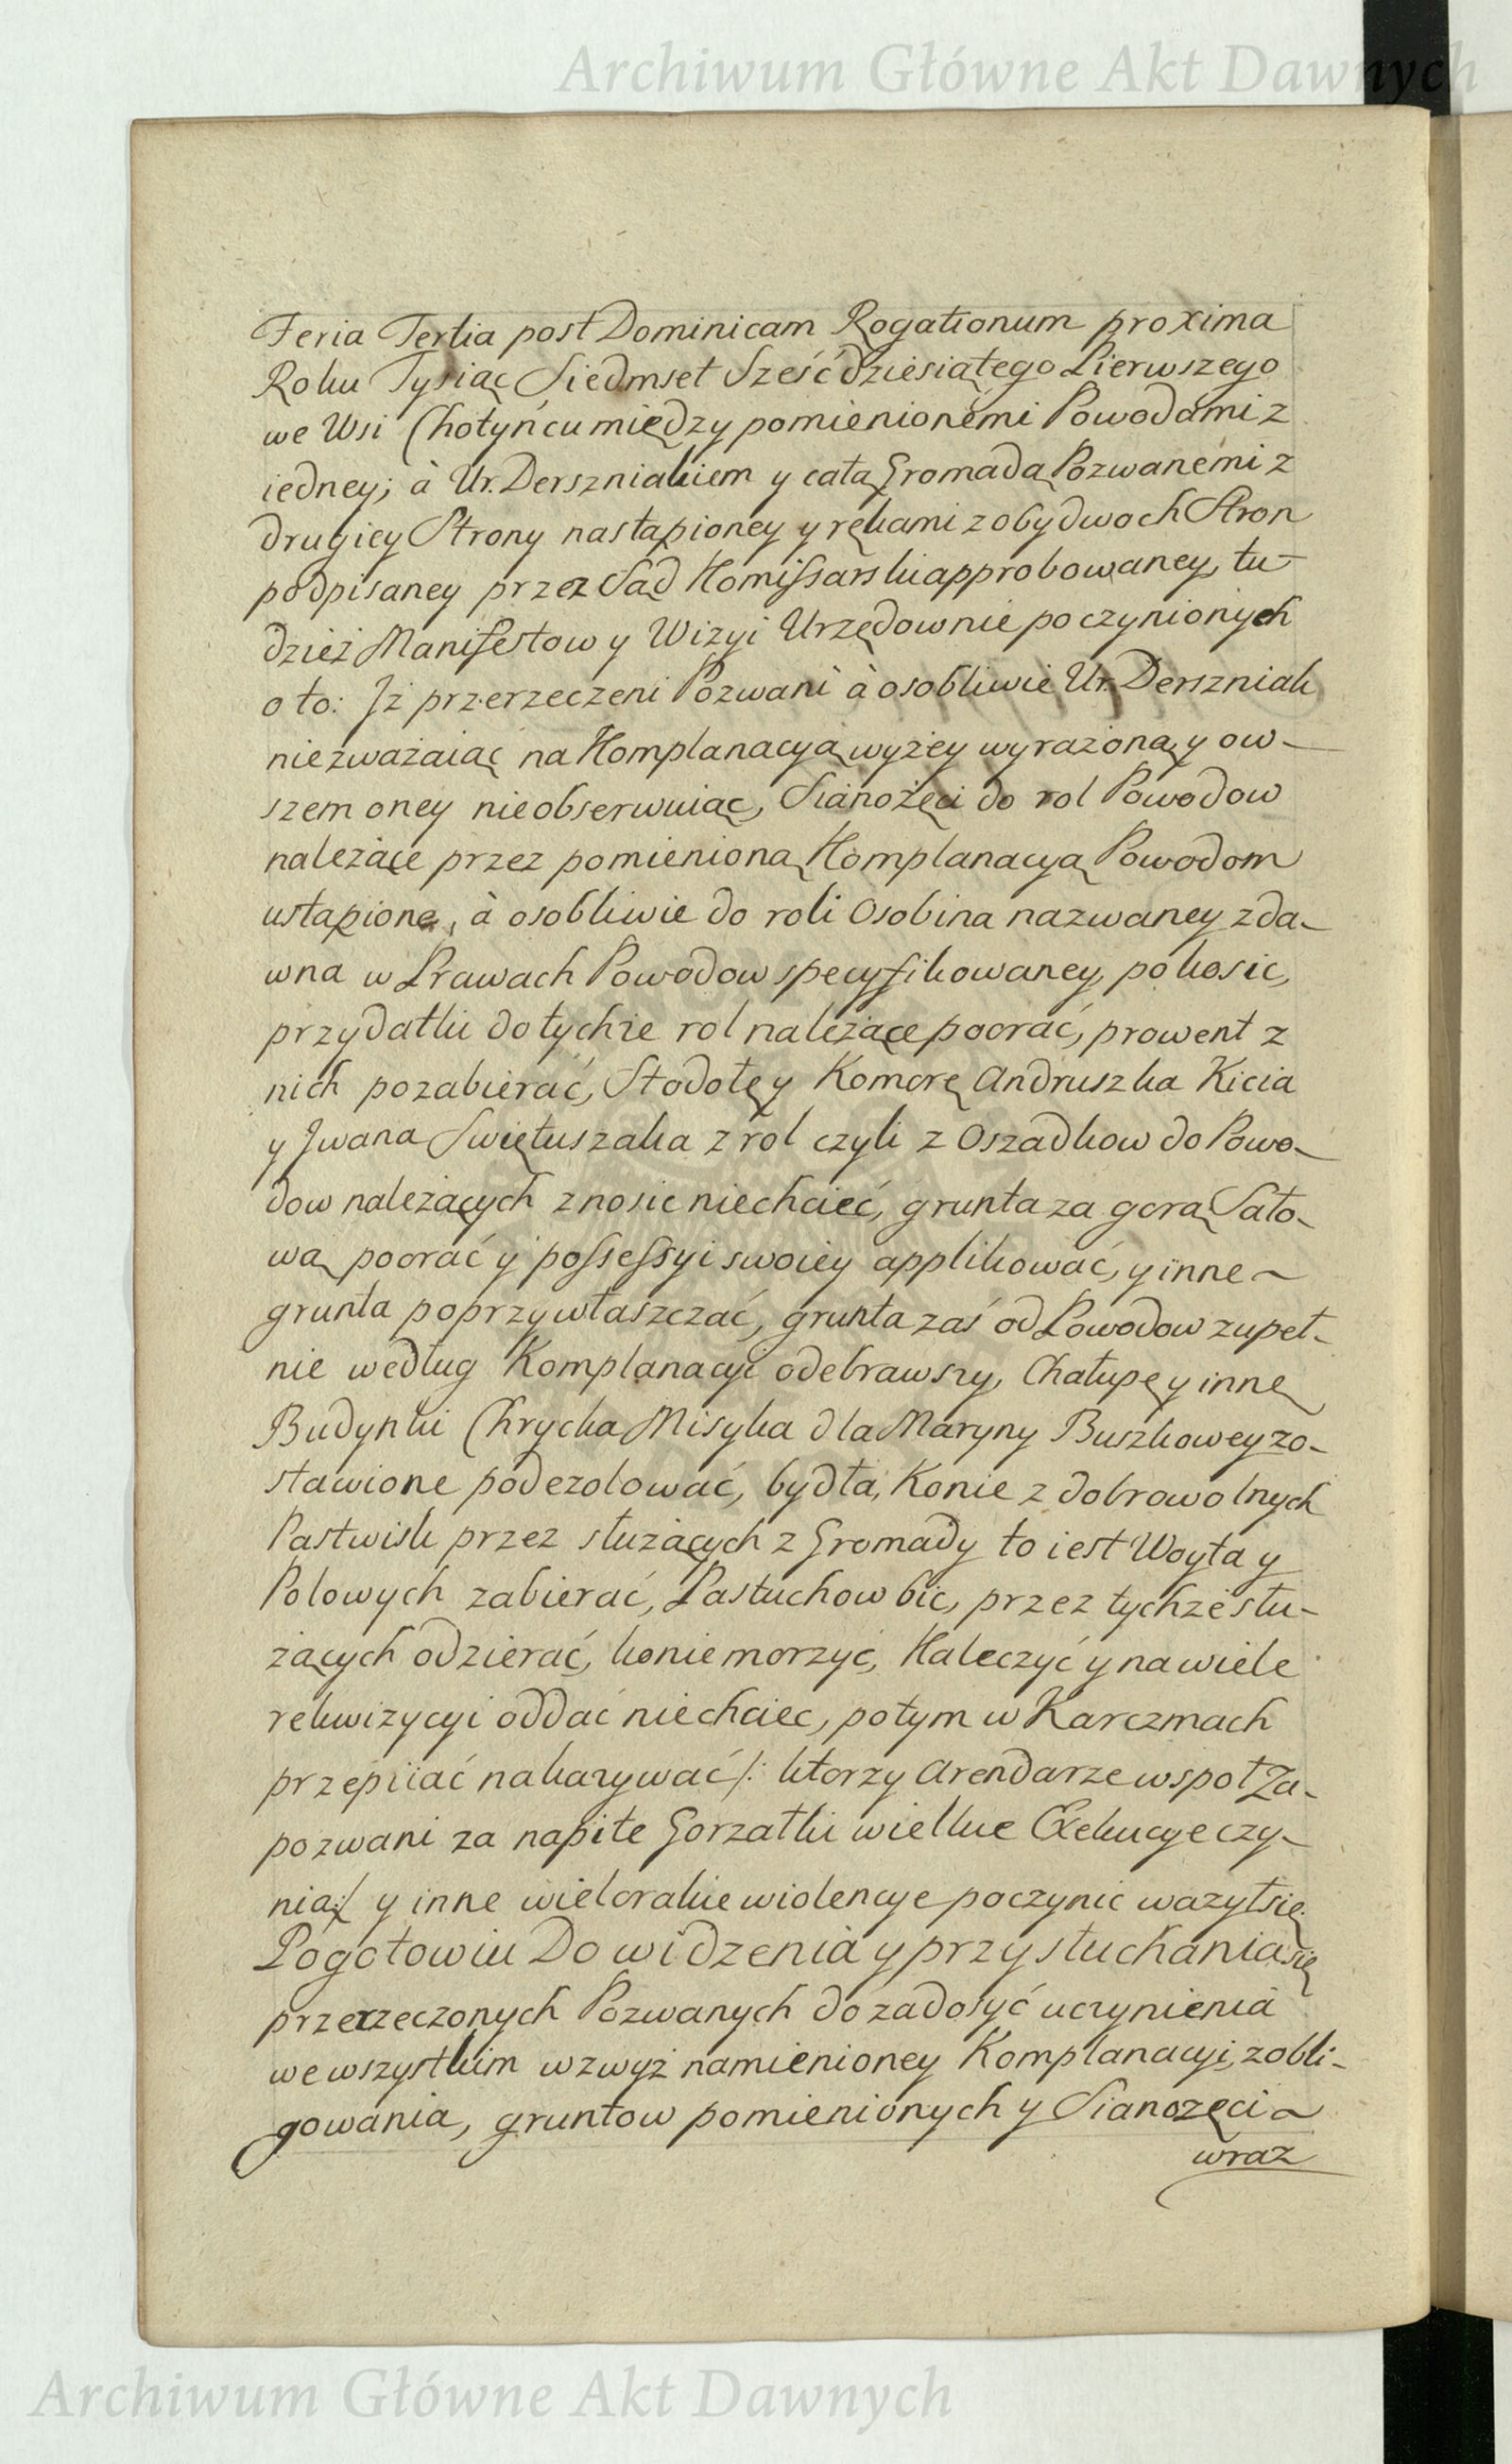 Archiwum Główne Akt Dawnych
Feria Tertia post Dominicam Rogationum proxima
Roku Tysiąc Siedmset Sześćdziesiątego Pierwszego
we Wsi Chotyńcu między pomienionémi Powodámi z
iedney; à Ur. Derszniakiem y całą Gromadą Pozwanémi z
drugiey Strony nastąpioney y rękami z obydwoch Stron
podpisaney przez Sąd Komissarski approbowaney, tu-
dzież Manifestow y Wizyi Urzędownie poczynionych
o to: Iż przerzeczeni Pozwani à osobliwie Ur. Derszniak
niezważaiąc na Komplanacyą wyżey wyrażoną y ow-
szem oney nieobserwuiąc, Sianożęci do rol Powodow
należące przez pomienioną Komplanacyą Powodom
ustąpione, à osobliwie do roli Osobina nazwaney zda-
wna w Prawach Powodow specyfikowaney, pokosic,
przydatki do tychże rol należące poorać, prowent z
nich pozabierać, Stodołę y Komorę Andruszka Kicia
y Iwana Swiętuszaka z rol czyli z Oszadkow do Powo-
dow należących znosic niechcieć, grunta za gorą Sato-
wą poorać y possessyi swoiey applikować, y inne
grunta poprzywłaszczać, grunta zaś od Powodow zupeł-
nie według Komplanacyi odebrawszy, Chałupę y inne
Budynki Chrycka Misyka dla Maryny Buszkowey zo-
stawione podezolować, bydła, Konie z dobrowolnych
Pastwisk przez służących z Gromady to iest Woyta y
Polowych zabierać, Pastuchow bic, przez tychże słu-
żących odzierać, konie morzyć, Kaleczyć y na wiele
rekwizycyi oddać niechciec, potym w Karczmach
przepiiać nakazywać /: ktorzy Arendarze wspoł Za-
pozwani za napite Gorzałki wielkie Exekucye czy-
nią :/ y inne wielorakie wiolencye poczynic ważył się
Pogotowiu Do widzenia y przysłuchania się
przerzeczonych Pozwanych do zadosyć uczynienia
we wszystkim wzwyż namienioney Komplanacyi, zobli-
gowania, gruntow pomienionych y Sianożęci
wraz
Archiwum Główne Akt Dawnych